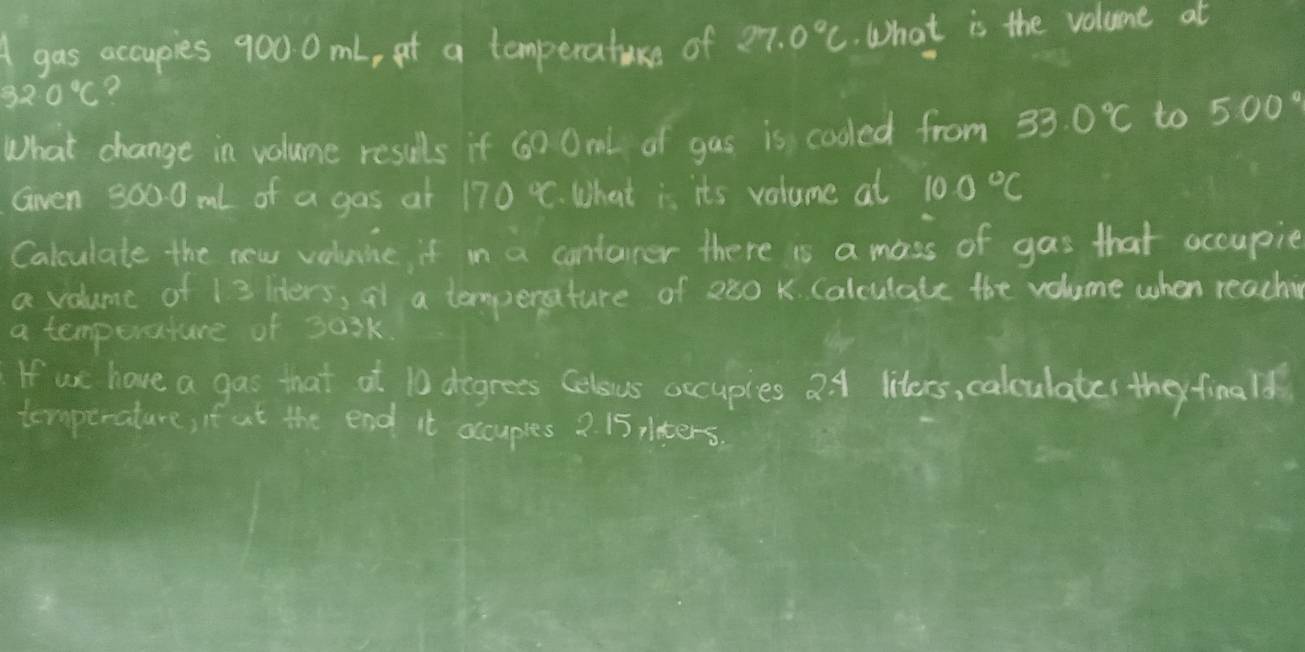 A gas occupies 900.0 mL, at a temperature of 27.0°C. What is the volume at
32.0°C?
What change in volume results if 60.0mL of gas is cooled from 33.0°C to 5.00°
Given 300.0 mL of a gas at 17.0 °C. What is its volume at 10.0 °C
Calculate the new volume, if in a container there is a mass of gas that occupie
a volume of 1.3 liters, at a temperature of 280 K. Calculate the volume when reachin
a temperature of 303K.
If we have a gas that at 10 degrees Celsius occupies 2.4 liters, calculates they final
temperature, if at the end it occupies 2.15 liters.